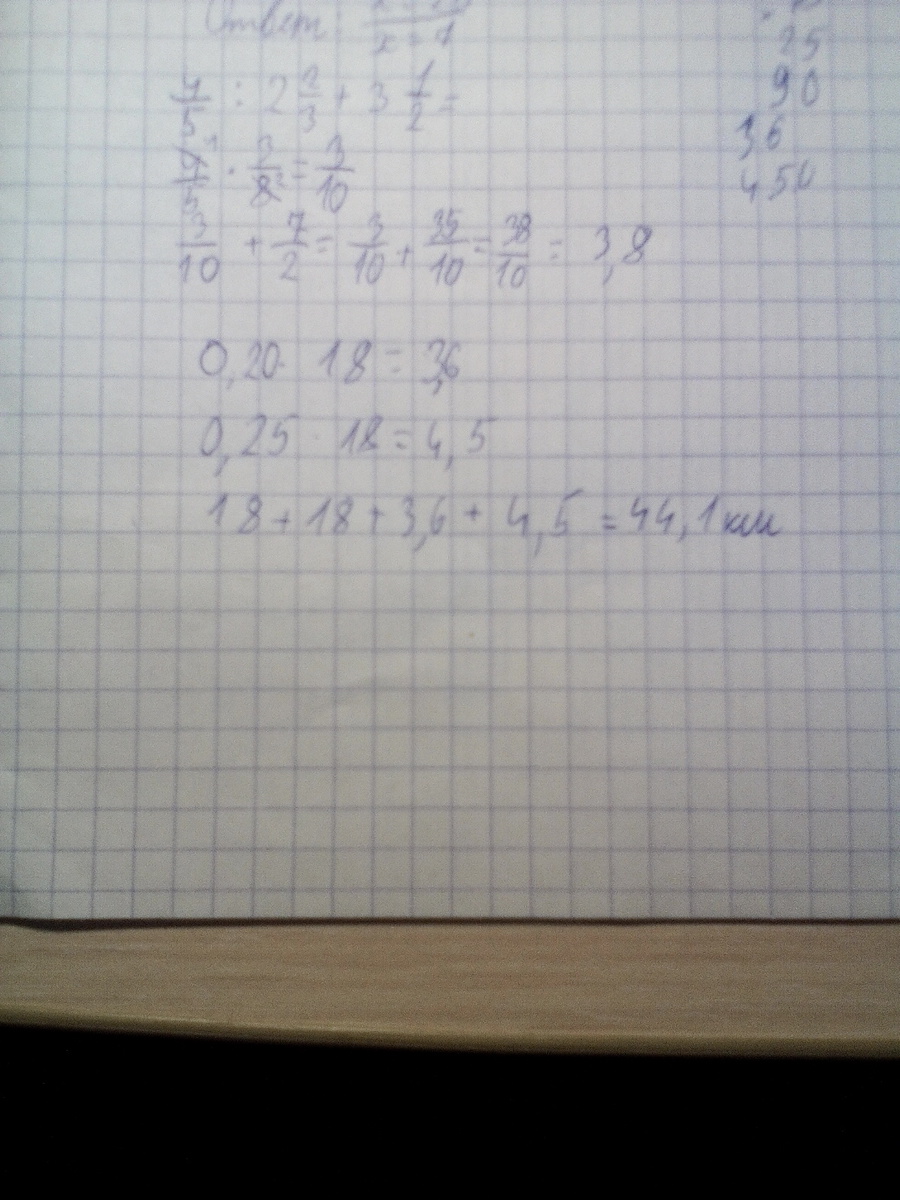 Ответ:
x = 7
4/5 : 2 2/3 + 3 1/2 =
4/5 · 3/8 = 3/10
3/10 + 7/2 = 3/10 + 35/10 = 38/10 = 3,8
0,20 · 18 = 3,6
0,25 · 18 = 4,5
18 + 18 + 3,6 + 4,5 = 44,1 км
25
90
36
450